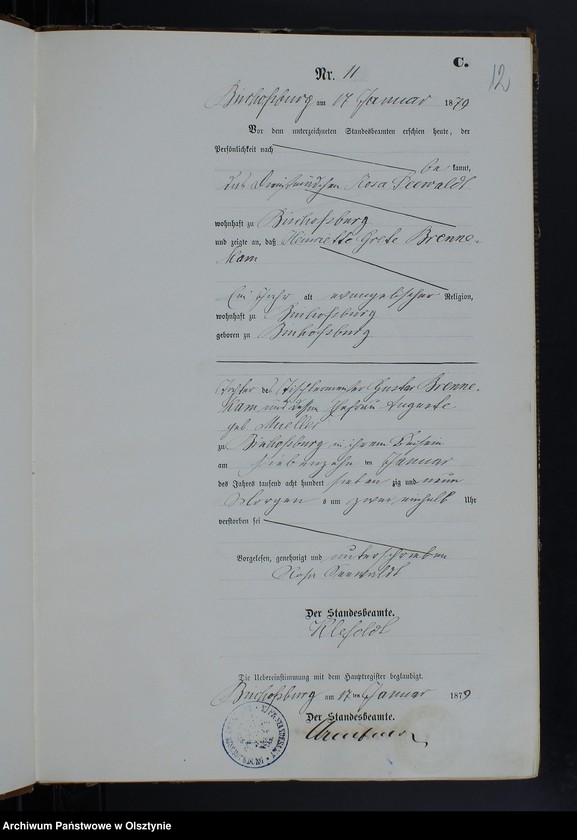 C.
12
Nr. 11
Bischofsburg am 17 Januar 1879
Vor dem unterzeichneten Standesbeamten erschien heute, der
Persönlichkeit nach
be kannt,
das Dienstmädchen Rosa Seewaldt
wohnhaft zu Bischofsburg
und zeigte an, daß Henriette Grete Brenne-
kam
Ein Jahr alt evangelischer Religion,
wohnhaft zu Bischofsburg
geboren zu Bischofsburg
Tochter des Tischlermeister Gustav Brenne-
kam und dessen Ehefrau Auguste
geb. Mueller
zu Bischofsburg in ihrem
am siebenzehn ten Januar
des Jahres tausend acht hundert sieben zig und neun
Morgen s um zwei einhalb Uhr
verstorben sei
Vorgelesen, genehmigt und unterschrieben
Rosa Seewaldt
Der Standesbeamte.
Die Uebereinstimmung mit dem Hauptregister beglaubigt.
Bischofsburg am 17 ten Januar 1879
Der Standesbeamte.
Archiwum Państwowe w Olsztynie